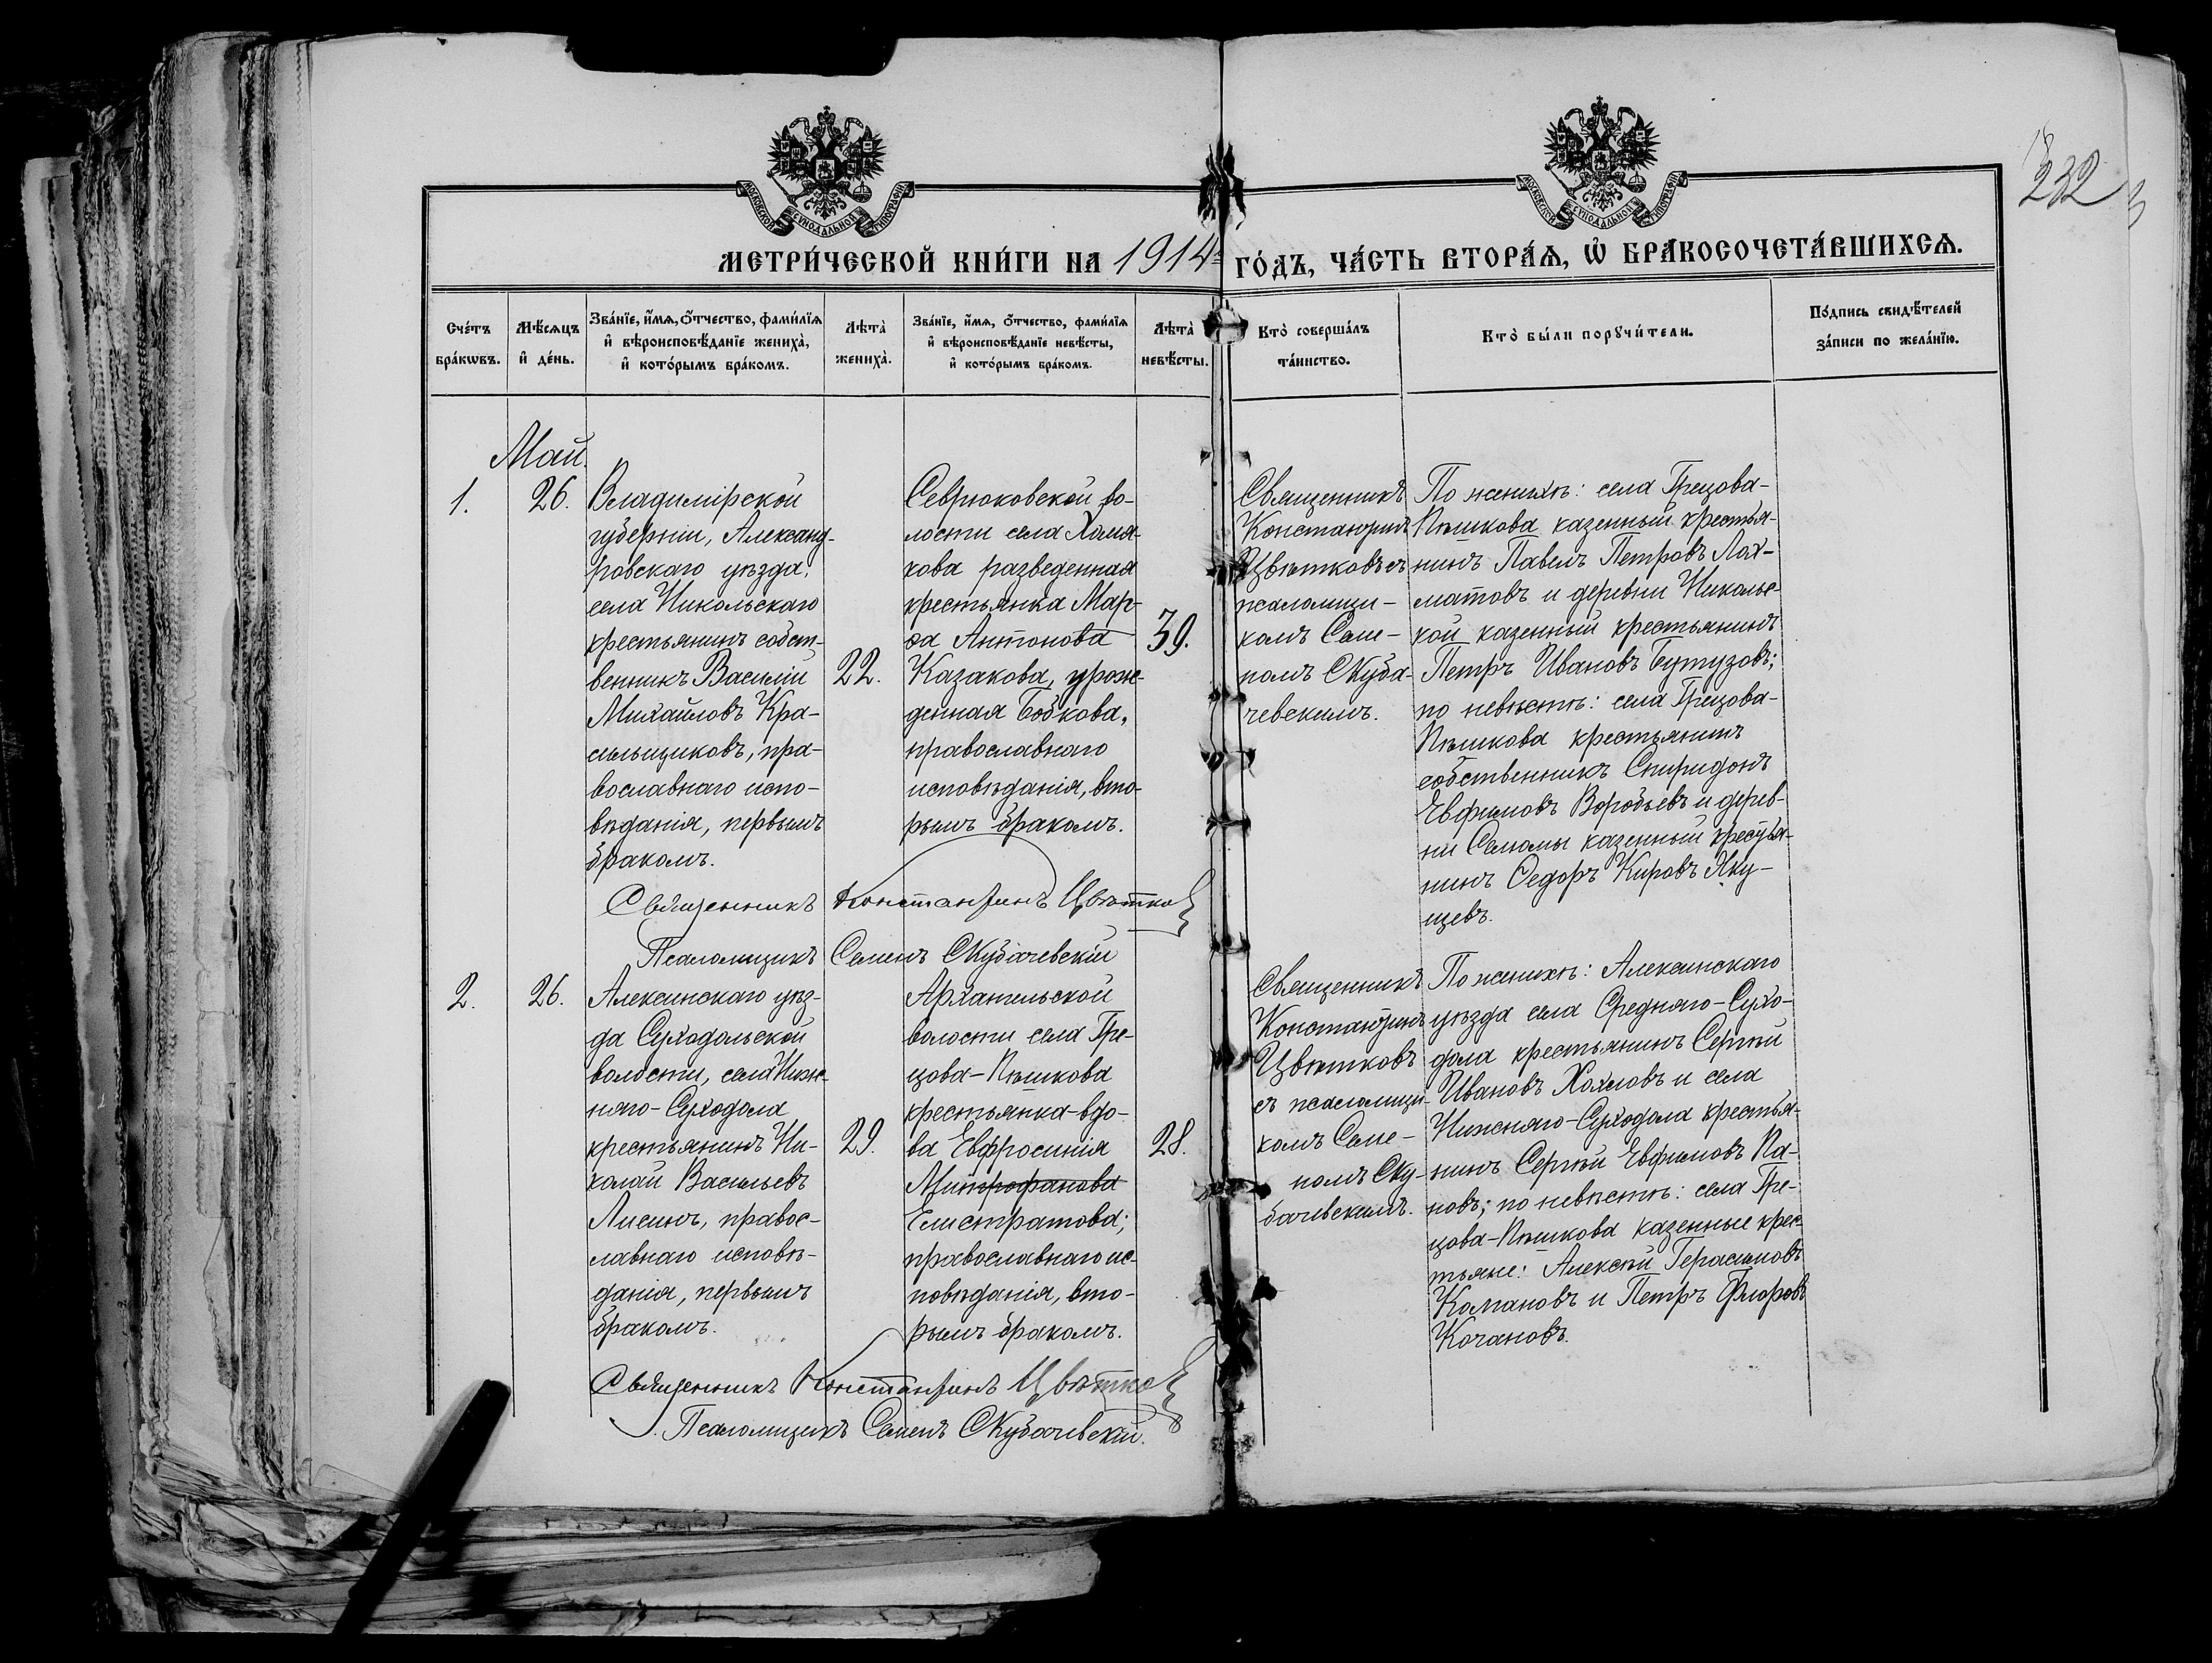 МОСКОВСКОЙ СѴНОДАЛЬНОЙ ТИПОГРАФІИ
МОСКОВСКОЙ СѴНОДАЛЬНОЙ ТИПОГРАФІИ
232
МЕТРИ́ЧЕСКОЙ КНИ́ГИ НА 1914 ГО́ДЪ, ЧА́СТЬ ВТОРА́Ѧ, Ѡ҆ БРАКОСОЧЕТА́ВШИХСѦ.
Сче́тъ
бра́кѡвъ.
Мѣ́сѧцъ
и҆ де́нь.
Зва́нїе, и҆́мѧ, о҆́тчество, фами́лїѧ
и҆ вѣроисповѣ́данїе жениха̀,
и҆ кото́рымъ бра́комъ.
Лѣта̀
жениха̀.
Зва́нїе, и҆́мѧ, о҆́тчество, фами́лїѧ
и҆ вѣроисповѣ́данїе невѣ́сты,
и҆ кото́рымъ бра́комъ.
Лѣта̀
невѣ́сты.
Кто̀ соверша́лъ
та́инство.
Кто̀ бы́ли порꙋчи́тели.
По́дпись свидѣ́телей
за́писи по жела́нїю.
Май.
1.
26.
Владимірской
губерніи, Александ-
ровскаго уѣзда,
села Никольскаго
крестьянинъ собст-
венникъ Василій
Михайловъ Кра-
сильщиковъ, пра-
вославнаго испо-
вѣданія, первымъ
бракомъ.
22.
Севрюковской во-
лости села Хомя-
кова разведенная
крестьянка Мар-
ѳа Антонова
Казакова, урож-
денная Бобкова,
православнаго
исповѣданія, вто-
рымъ бракомъ.
39.
Священникъ
Константинъ
Цвѣтковъ съ
псаломщи-
комъ Симе-
номъ Скуба-
чевскимъ.
По женихѣ: села Грецова-
Пѣшкова казенный крестья-
нинъ Павелъ Петровъ Лах-
матовъ и деревни Никольс-
кой казенный крестьянинъ
Петръ Ивановъ Бутузовъ;
по невѣстѣ: села Грецова-
Пѣшкова крестьянинъ
собственникъ Спиридонъ
Евфимовъ Воробьевъ и дерев-
ни Селюмы казенный крестья-
нинъ Ѳедоръ Кировъ Яку-
щевъ.
Священникъ Константинъ Цвѣтков
Псаломщикъ Семенъ Скубачевскій
2.
26.
Алексинскаго уѣз-
да Суходольской
волости, села Ниж-
няго-Суходола
крестьянинъ Ни-
колай Васильевъ
Лисинъ, правос-
лавнаго исповѣ-
данія, первымъ
бракомъ.
29.
Архангельской
волости села Гре-
цова-Пѣшкова
крестьянка-вдо-
ва Евфросинія
Митрофанова
Елистратова;
православнаго ис-
повѣданія, вто-
рымъ бракомъ.
28.
Священникъ
Константинъ
Цвѣтковъ
съ псаломщи-
комъ Симе-
номъ Ску-
бачевскимъ.
По женихѣ: Алексинскаго
уѣзда села Средняго-Сухо-
дола крестьянинъ Сергѣй
Ивановъ Хохловъ и села
Нижняго-Суходола крестья-
нинъ Сергѣй Евфимовъ Па-
новъ; по невѣстѣ: села Гре-
цова-Пѣшкова казенные крес-
тьяне: Алексѣй Герасимовъ
Комановъ и Петръ Флоровъ
Кочановъ.
Священникъ Константинъ Цвѣтков
Псаломщикъ Семенъ Скубачевскій.